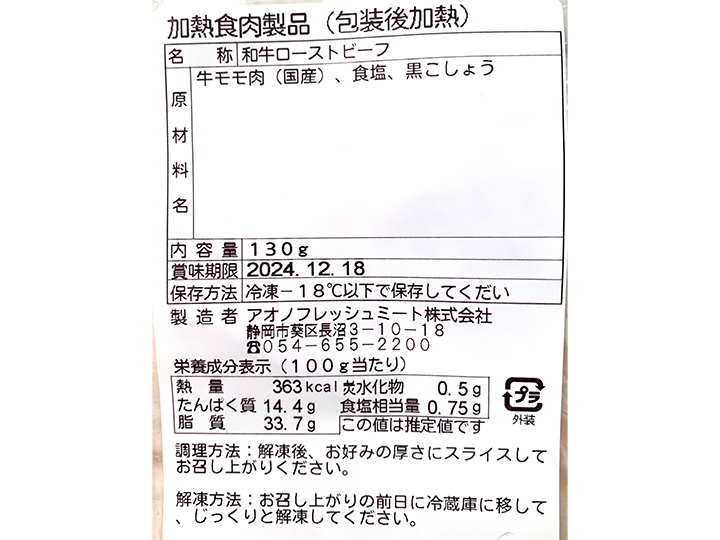 加熱食肉製品（包装後加熱）
名称 和牛ローストビーフ
原材料名 牛モモ肉（国産）、食塩、黒こしょう
内容量 130g
賞味期限 2024.12.18
保存方法 冷凍－18℃以下で保存してくだい
製造者 アオノフレッシュミート株式会社
静岡市葵区長沼3－10－18
☎054－655－2200
栄養成分表示（100g当たり）
熱量 363kcal 炭水化物 0.5g
たんぱく質 14.4g 食塩相当量 0.75g
脂質 33.7g この値は推定値です
プラ
外装
調理方法：解凍後、お好みの厚さにスライスして
お召し上がりください。
解凍方法：お召し上がりの前日に冷蔵庫に移して
、じっくりと解凍してください。